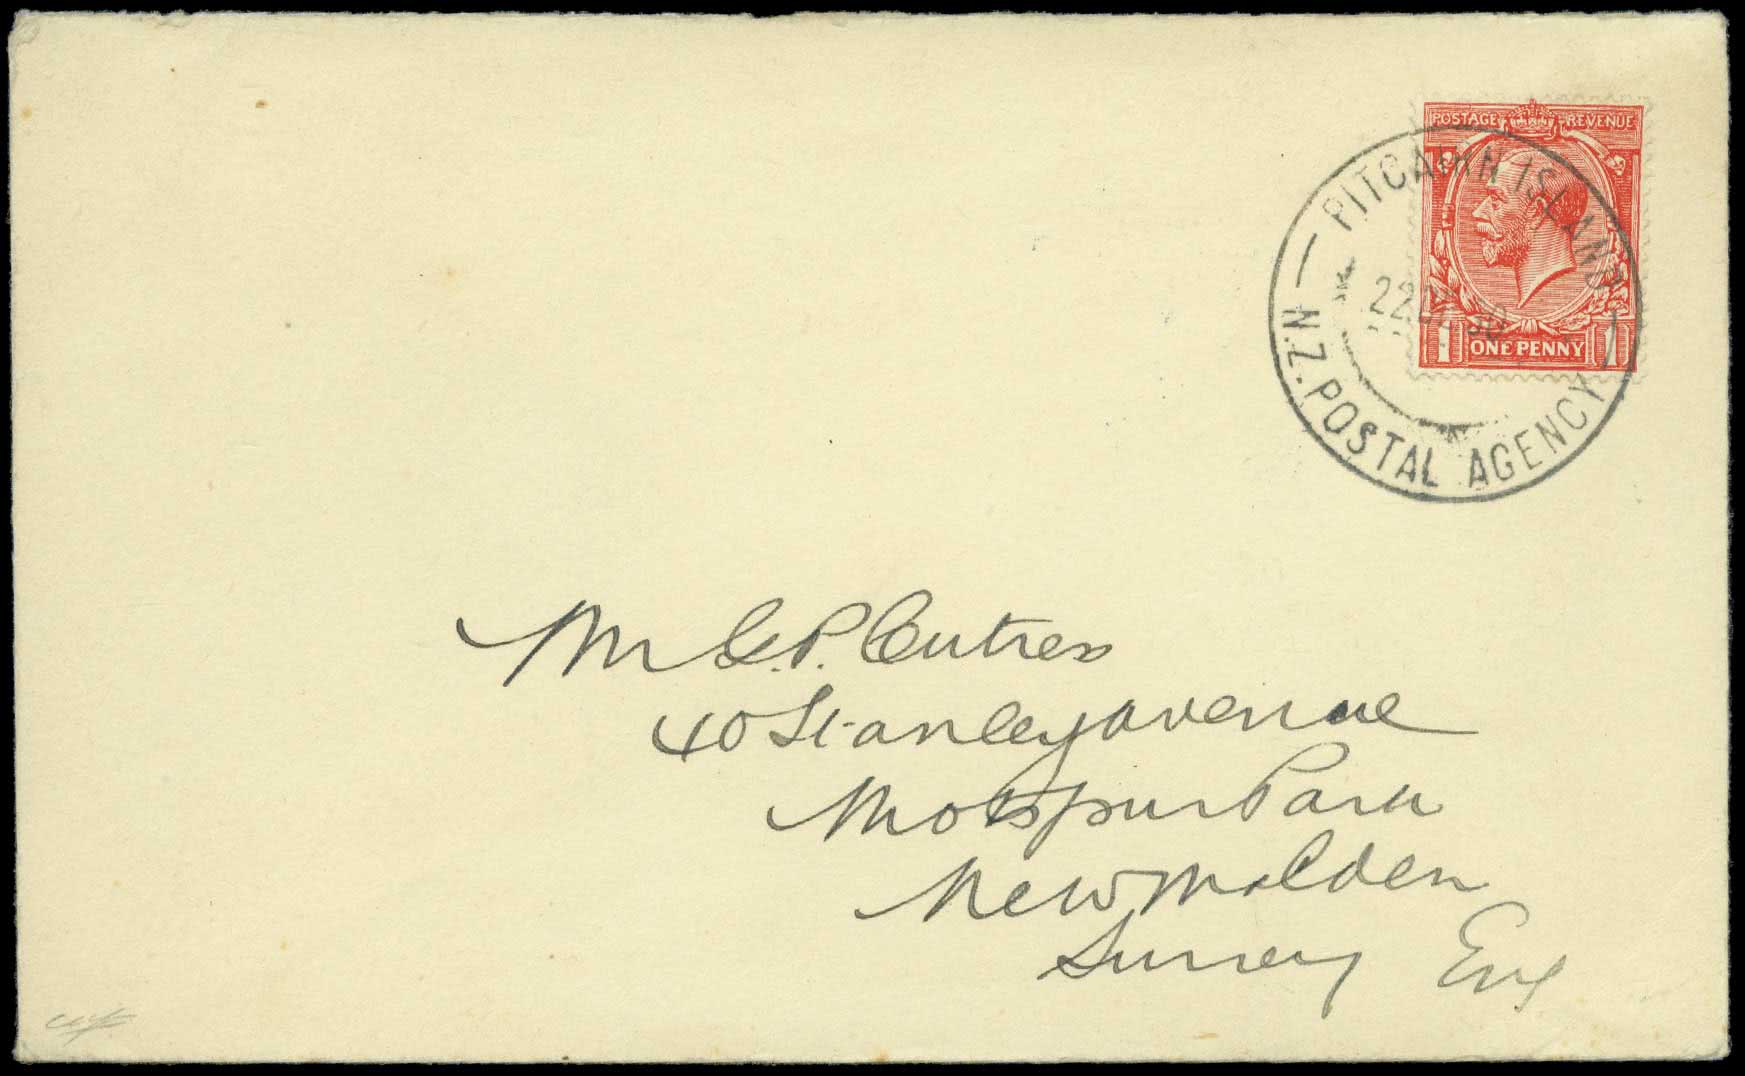 POSTAGE REVENUE
1 ONE PENNY 1
PITCAIRN ISLAND
N.Z. POSTAL AGENCY
Mr G.P. Cutress
40 Stanley avenue
Motspur Park
New Malden
Surrey Eng